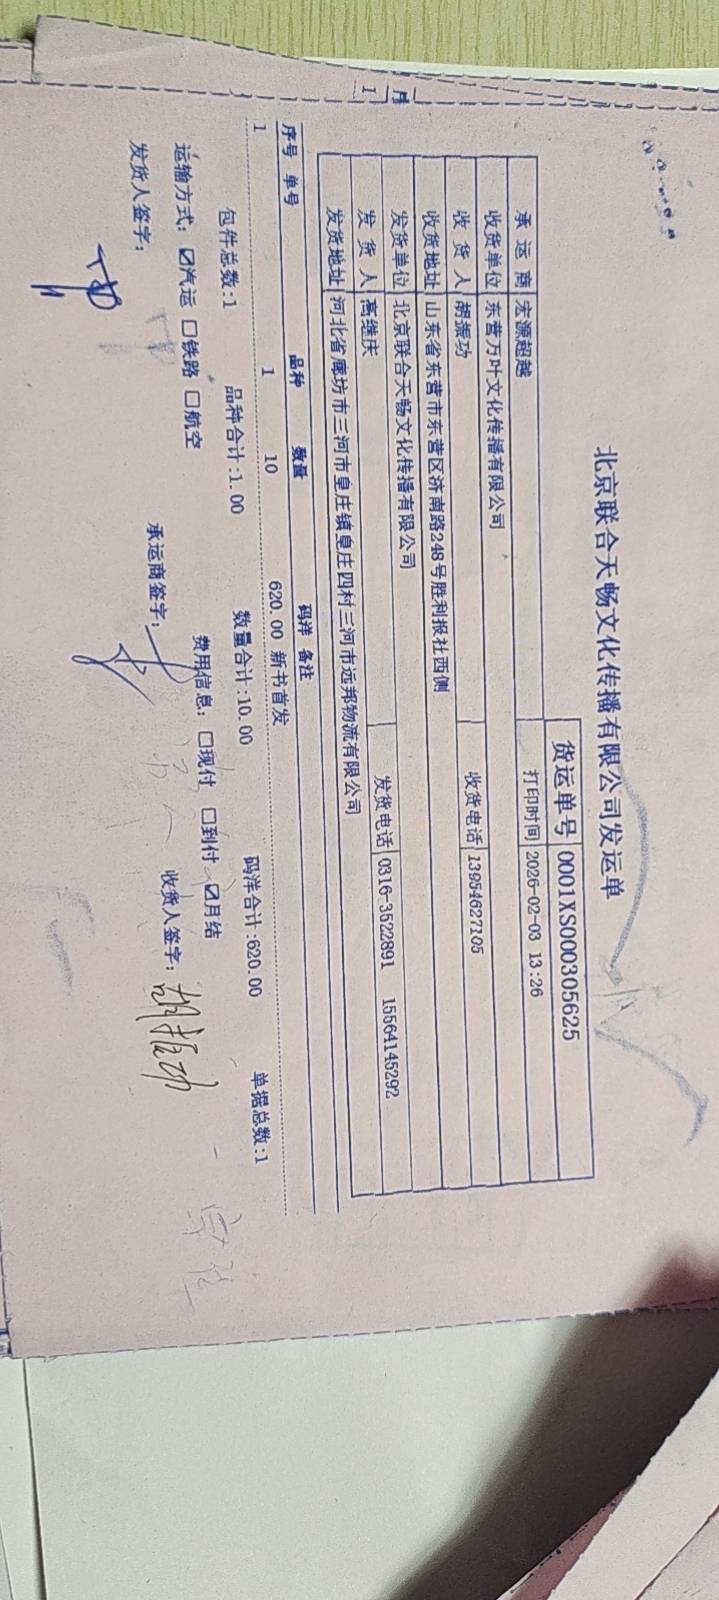 北京联合天畅文化传播有限公司发运单
货运单号 0001XS000305625
承运商 宏源超越 打印时间 2026-02-03 13:26
收货单位 东营万叶文化传播有限公司
收货人 胡振功 收货电话 13954627105
收货地址 山东省东营市东营区济南路248号胜利报社西侧
发货单位 北京联合天畅文化传播有限公司
发货人 高继庆 发货电话 0316-3522891 15564145292
发货地址 河北省廊坊市三河市皇庄镇皇庄四村三河市远邦物流有限公司
序号 单号 品种 数量 码洋 备注
1 1 10 620.00 新书首发
包件总数:1 品种合计:1.00 数量合计:10.00 码洋合计:620.00 单据总数:1
运输方式: ☑汽运 □铁路 □航空 费用信息: □现付 □到付 ☑月结
发货人签字: 承运商签字: 收货人签字: 胡振功